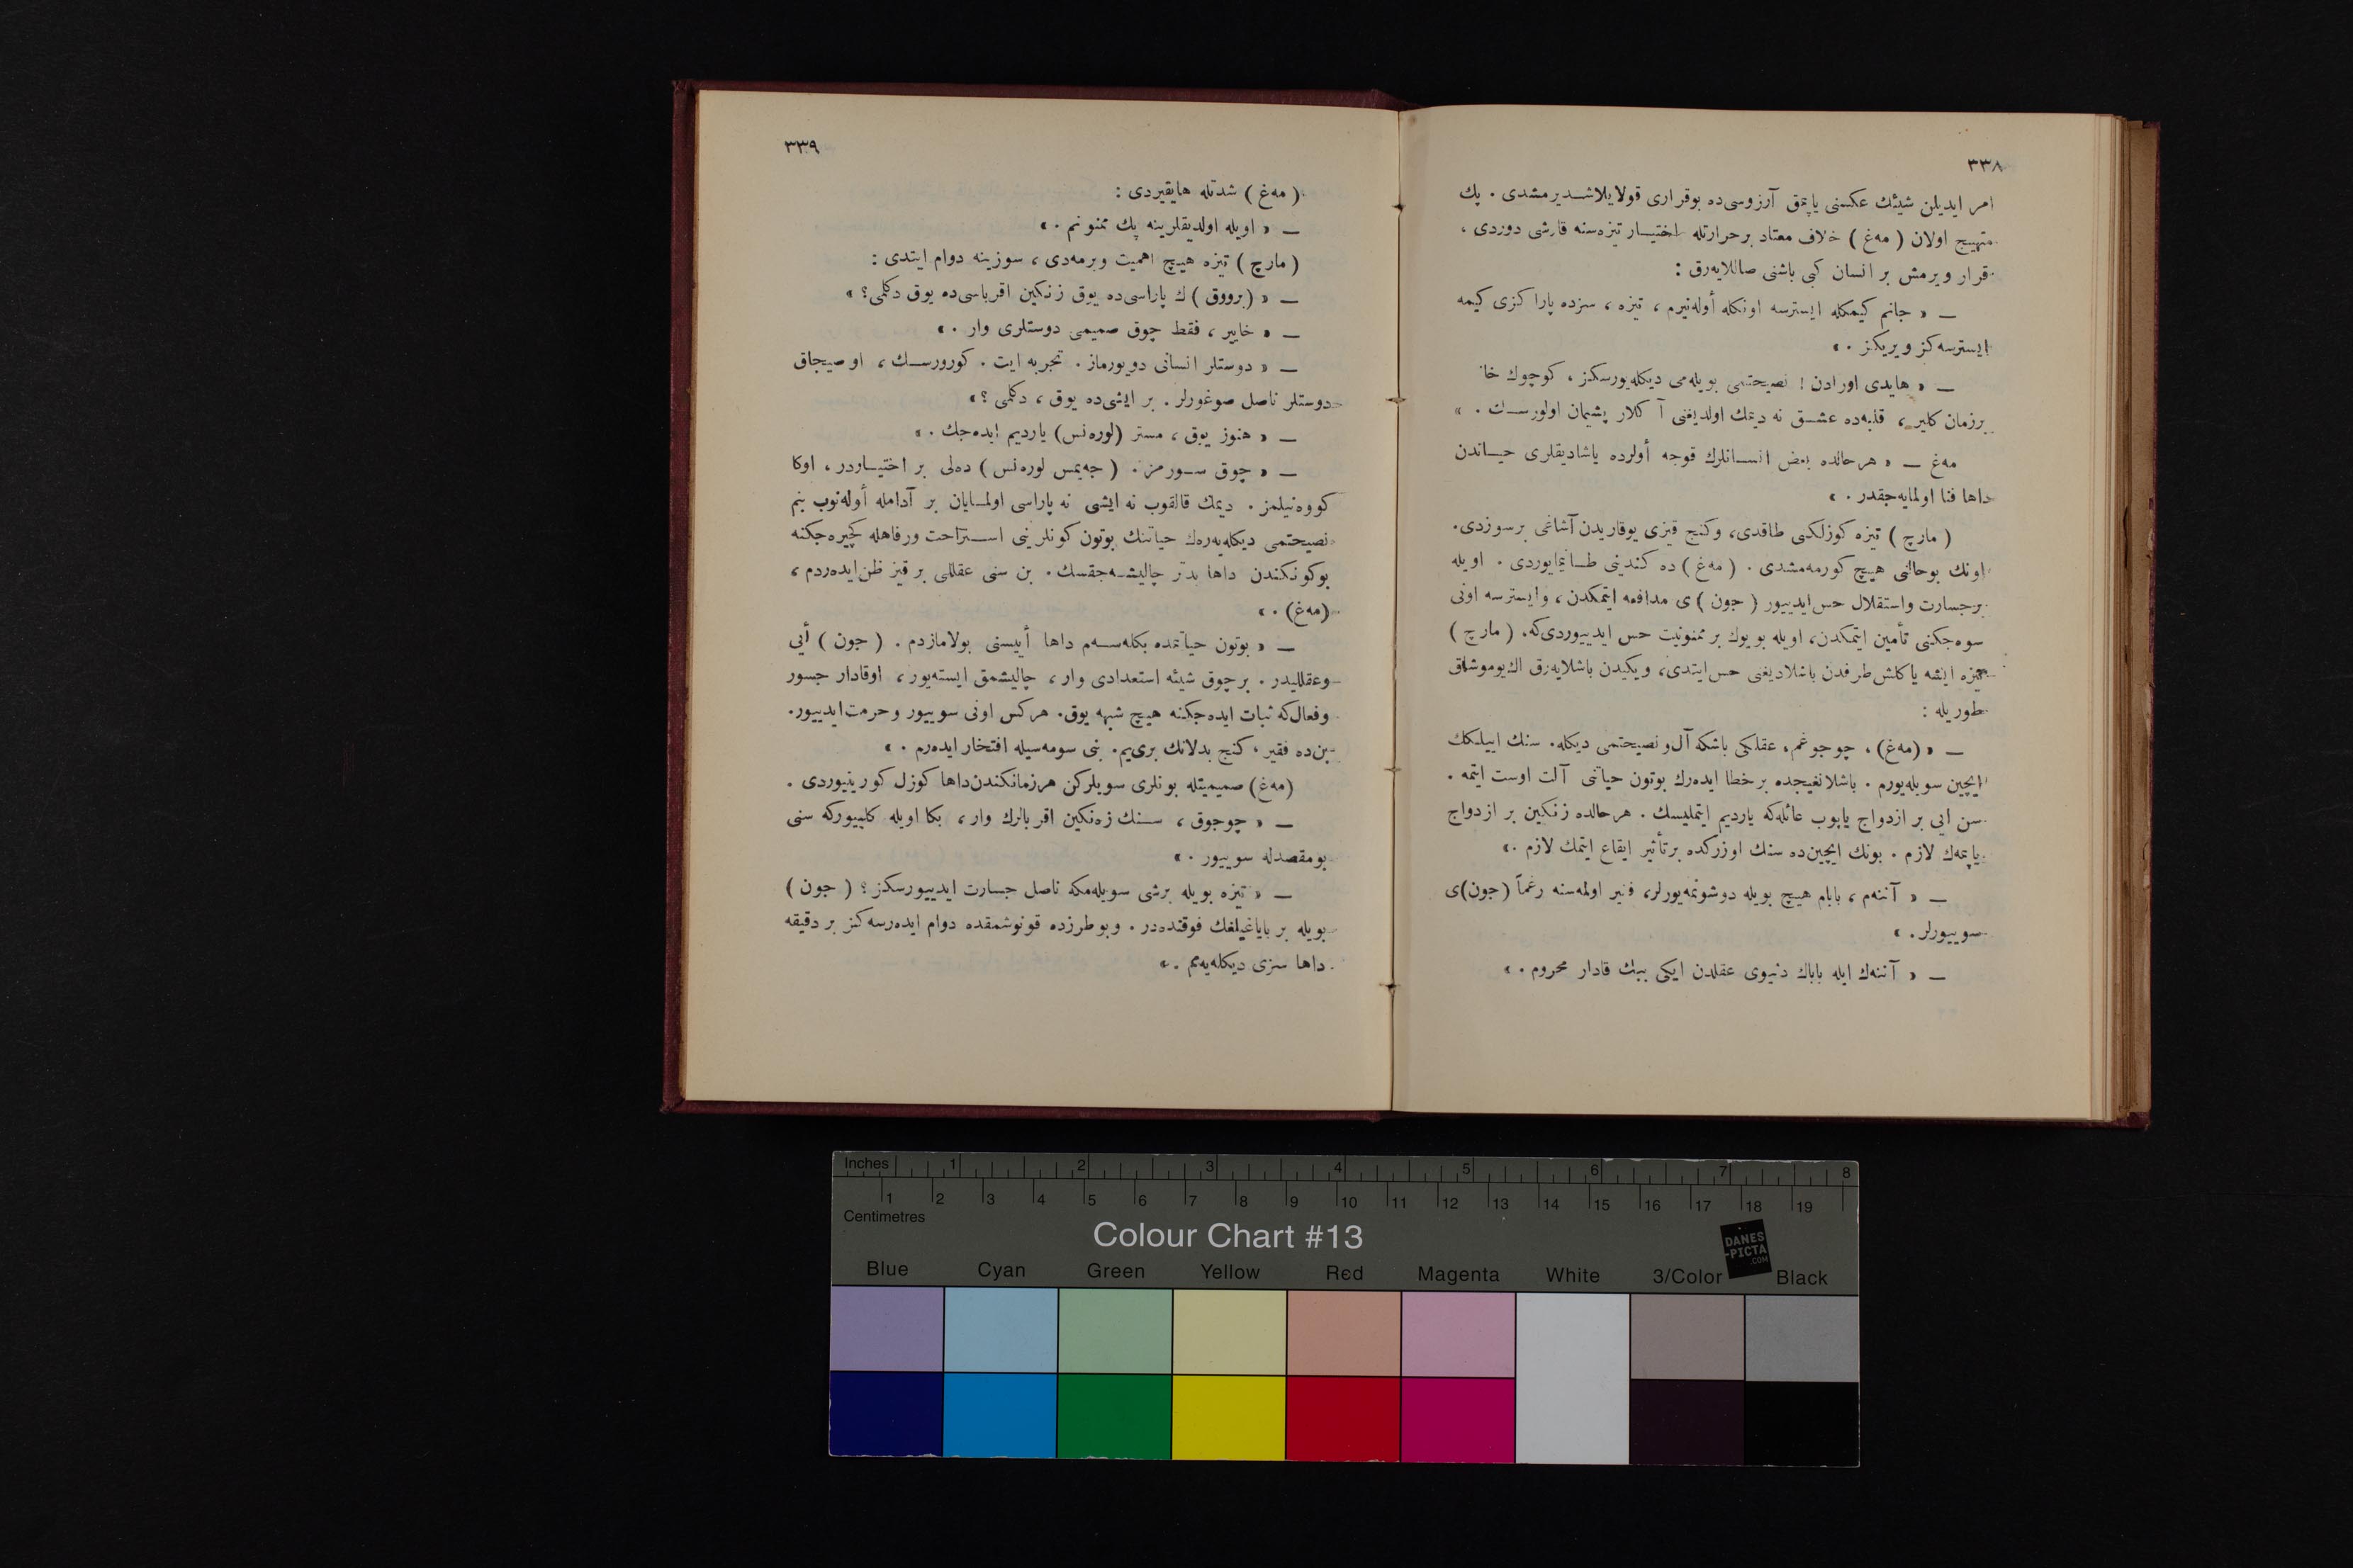 ٣٣٨
امر ایدیلن شیئك عكسنی یاپمق آرزوسی‌ده بوقراری قولایلاشدیرمشدی . پك
متهیج اولان ( مه‌غ ) خلاف معتاد برحرارتله اختیار تیزه‌سنه قارشی دوردی ،
قرار ویرمش بر انسان كبی باشنی صاللایه‌رق :
— « جانم كیمكله ایسترسه اونكله أوله‌نیرم ، تیزه ، سزده پاراكزی كیمه
ایسترسه‌كز ویریكز . »
— « هایدی اورادن ! نصیحتمی بویله‌می دیكله‌یورسكز ، كوچوك خانم
برزمان كلیر ، قلبه‌ده عشق نه دیمك اولدیغنی آكلار پشیمان اولورسك . »
مه‌غ — « هرحالده بعض انسانلرك قوجه أولرده یاشادیقلری حیاتدن
داها فنا اولمایه‌جقدر . »
( مارچ ) تیزه كوزلكنی طاقدی، وكنج قیزی یوقاریدن آشاغی برسوزدی.
اونك بوحالنی هیچ كورمه‌مشدی . ( مه‌غ ) ده كندینی طانیمایوردی . اویله
برجسارت واستقلال حس‌ایدییور ( جون ) ی مدافعه ایتمكدن ، وایسترسه اونی
سوه‌جكنی تأمین ایتمكدن، اویله بویوك بر ممنونیت حس ایدییوردی‌كه. ( مارچ )
تیزه ایشه یاكلش طرفدن باشلادیغنی حس ایتدی، ویكیدن باشلایه‌رق اك‌یوموشاق
طوریله :
— « (مه‌غ) ، چوجوغم، عقلكی باشكه آل‌ونصیحتمی دیكله. سنك اییلككك
ایچین سویله‌یورم . باشلانغیجده برخطا ایده‌رك بوتون حیاتنی آلت اوست ایتمه .
سن ایی بر ازدواج یاپوب عائله‌كه یاردیم ایتملیسك . هرحالده زنكین بر ازدواج
یاپمه‌ك لازم . بونك ایچین‌ده سنك اوزركده برتأثیر ایقاع ایتمك لازم .»
— « آننه‌م ، بابام هیچ بویله دوشونمه‌یورلر، فقیر اولمه‌سنه رغماً (جون)ی
سوییورلر. »
— « آننه‌ك ایله باباك دنیوی عقلدن ایكی ببك قادار محروم . »
٣٣٩
( مه‌غ ) شدتله هایقیردی :
— « اویله اولدیقلرینه پك ممنونم . »
( مارچ ) تیزه هیچ اهمیت ویرمه‌دی ، سوزینه دوام ایتدی :
— « (برووق ) ك پاراسی‌ده یوق زنكین اقرباسی‌ده یوق دكلمی؟ »
— « خایر ، فقط چوق صمیمی دوستلری وار . »
— « دوستلر انسانی دویورماز . تجربه ایت . كورورسك ، او صیجاق
دوستلر ناصل صوغورلر . بر ایشی‌ده یوق ، دكلمی ؟»
— « هنوز یوق ، مستر (لوره‌نس) یاردیم ایده‌جك . »
— « چوق سورمز . ( جه‌یمس لوره‌نس ) ده‌لی بر اختیاردر ، اوكا
كووه‌نیلمز . دیمك قالقوب نه ایشی نه پاراسی اولمایان بر آدامله أوله‌نوب بنم
نصیحتمی دیكله‌یه‌رەك حیاتنك بوتون كونلرینی استراحت ورفاهله كچیره‌جكنه
بوكونكندن داها بدتر چالیشه‌جقسك . بن سنی عقللی بر قیز ظن‌ایده‌ردم ،
(مه‌غ) . »
— « بوتون حیاتمده بكله‌سه‌م داها أییسنی بولامازدم . ( جون ) أیی
وعقللیدر . برچوق شیئه استعدادی وار ، چالیشمق ایسته‌یور ، اوقادار جسور
وفعال‌كه ثبات ایده‌جكنه هیچ شبهه یوق. هركس اونی سوییور وحرمت‌ایدییور.
بن‌ده فقیر ، كنج بدلانك بری‌یم. بنی سومه‌سیله افتخار ایده‌رم . »
(مه‌غ) صمیمیتله بونلری سویلركن هرزمانكندن‌داها كوزل كورینیوردی .
— « چوجوق ، سنك زه‌نكین اقربالرك وار ، بكا اویله كلییوركه سنی
بومقصدله سوییور . »
— « تیزه بویله برشی سویله‌مكه ناصل جسارت ایدییورسكز ؟ ( جون )
بویله بر بایاغیلغك فوقنده‌در . وبوطرزده قونوشمقده دوام ایده‌رسه‌كز بر دقیقه
داها سزی دیكله‌یه‌مم . »
Inches 1 2 3 4 5 6 7 8
1 2 3 4 5 6 7 8 9 10 11 12 13 14 15 16 17 18 19
Centimetres
Colour Chart #13
DANES
-PICTA
.COM
Blue Cyan Green Yellow Red Magenta White 3/Color Black